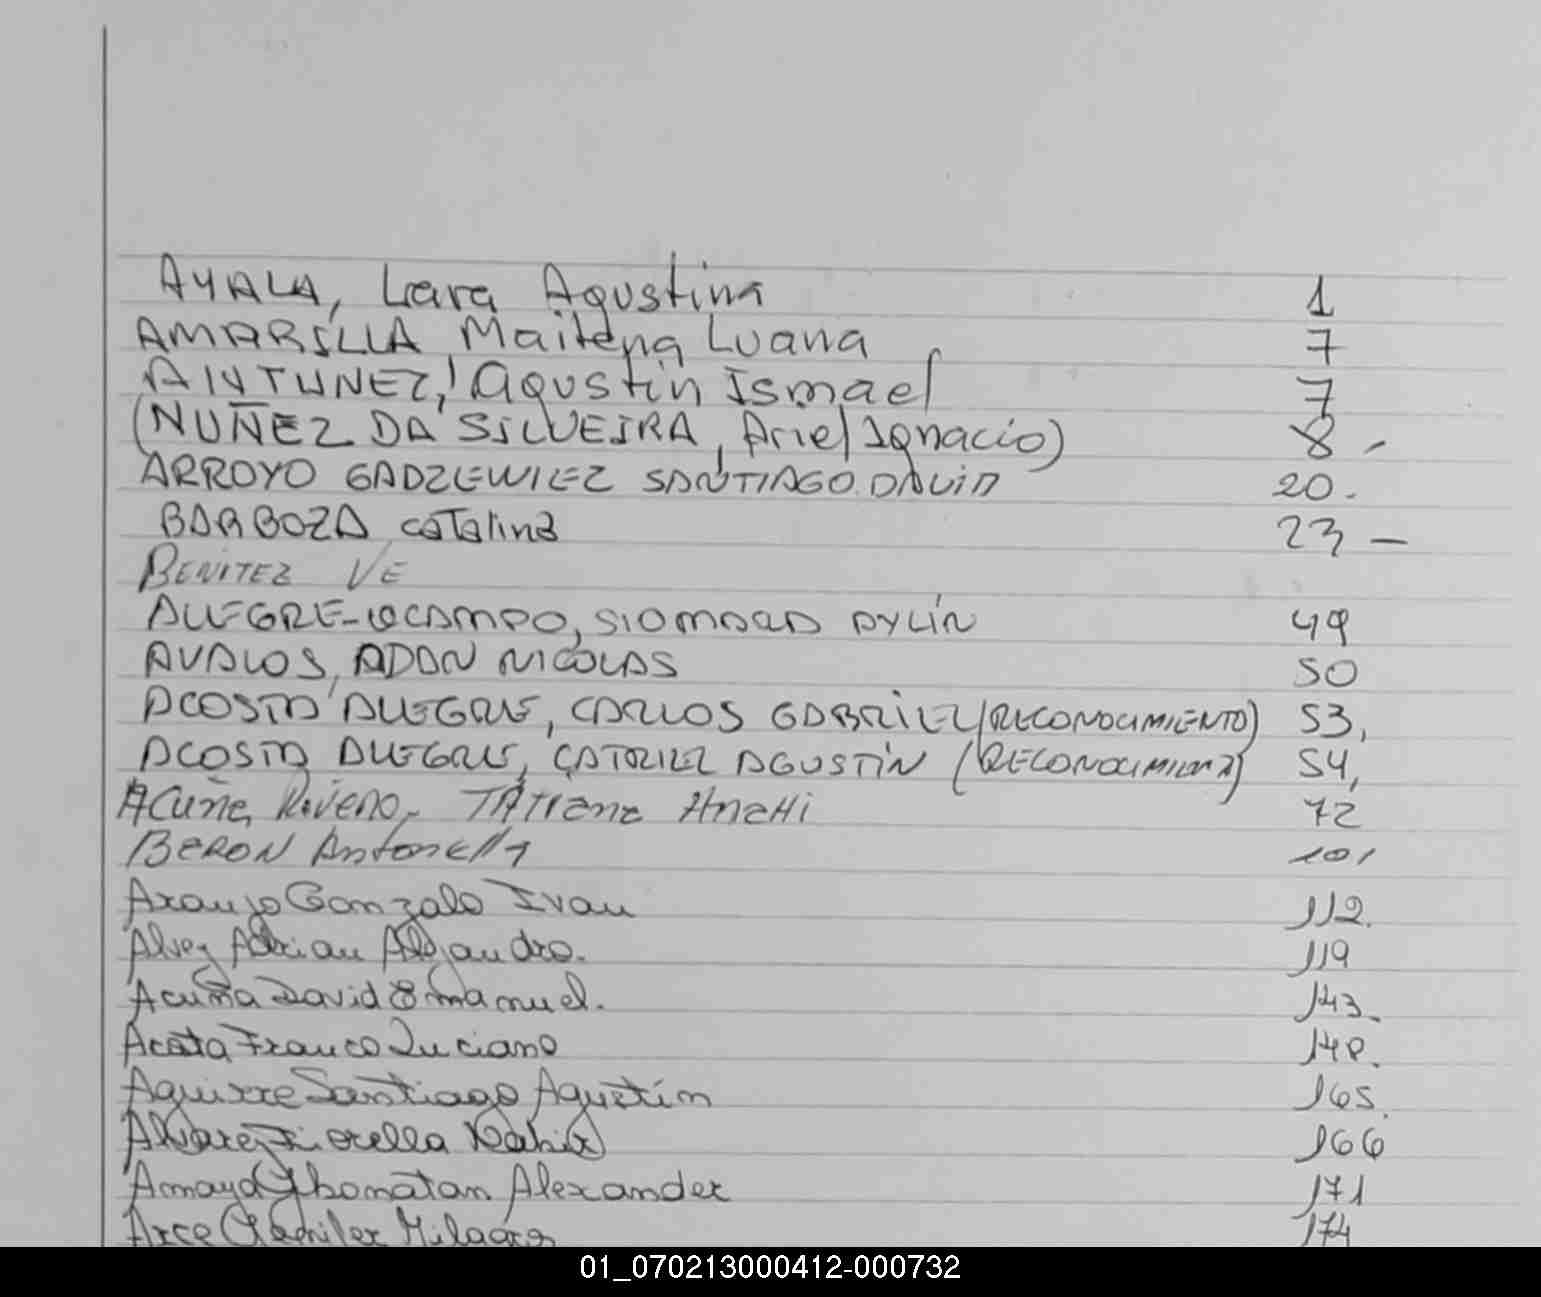 AYALA, Lara Agustina 1
AMARILLA Maitena Luana 7
ANTUNEZ, Agustin Ismael 7
(NUÑEZ DA SILVEIRA, Ariel Ignacio) 8 -
ARROYO GADZEWIEZ SANTIAGO DAVID 20.
BARBOZA catalina 23 -
BENITEZ VE
ALEGRE-OCAMPO, SIOMARA AYLÍN 49
AVALOS, ADAN NICOLAS 50
ACOSTA ALEGRE, CARLOS GABRIEL (RECONOCIMIENTO) 53,
ACOSTA ALEGRE, CATRIEL AGUSTÍN 54,
Acuña Rivero, TATIANA ANAHI 72
BERON Antonella 101
Araujo Gonzalo Ivan 112.
Alvez Adrian Alejandro. 119
Acuña David Emanuel. 143.
Franco Luciano 148.
Aguirre Santiago Agustín 165.
Alvarez Fiorella Nahir 166
Amaya Jhonatan Alexander 171
Arce Milagros 174
01_070213000412-000732